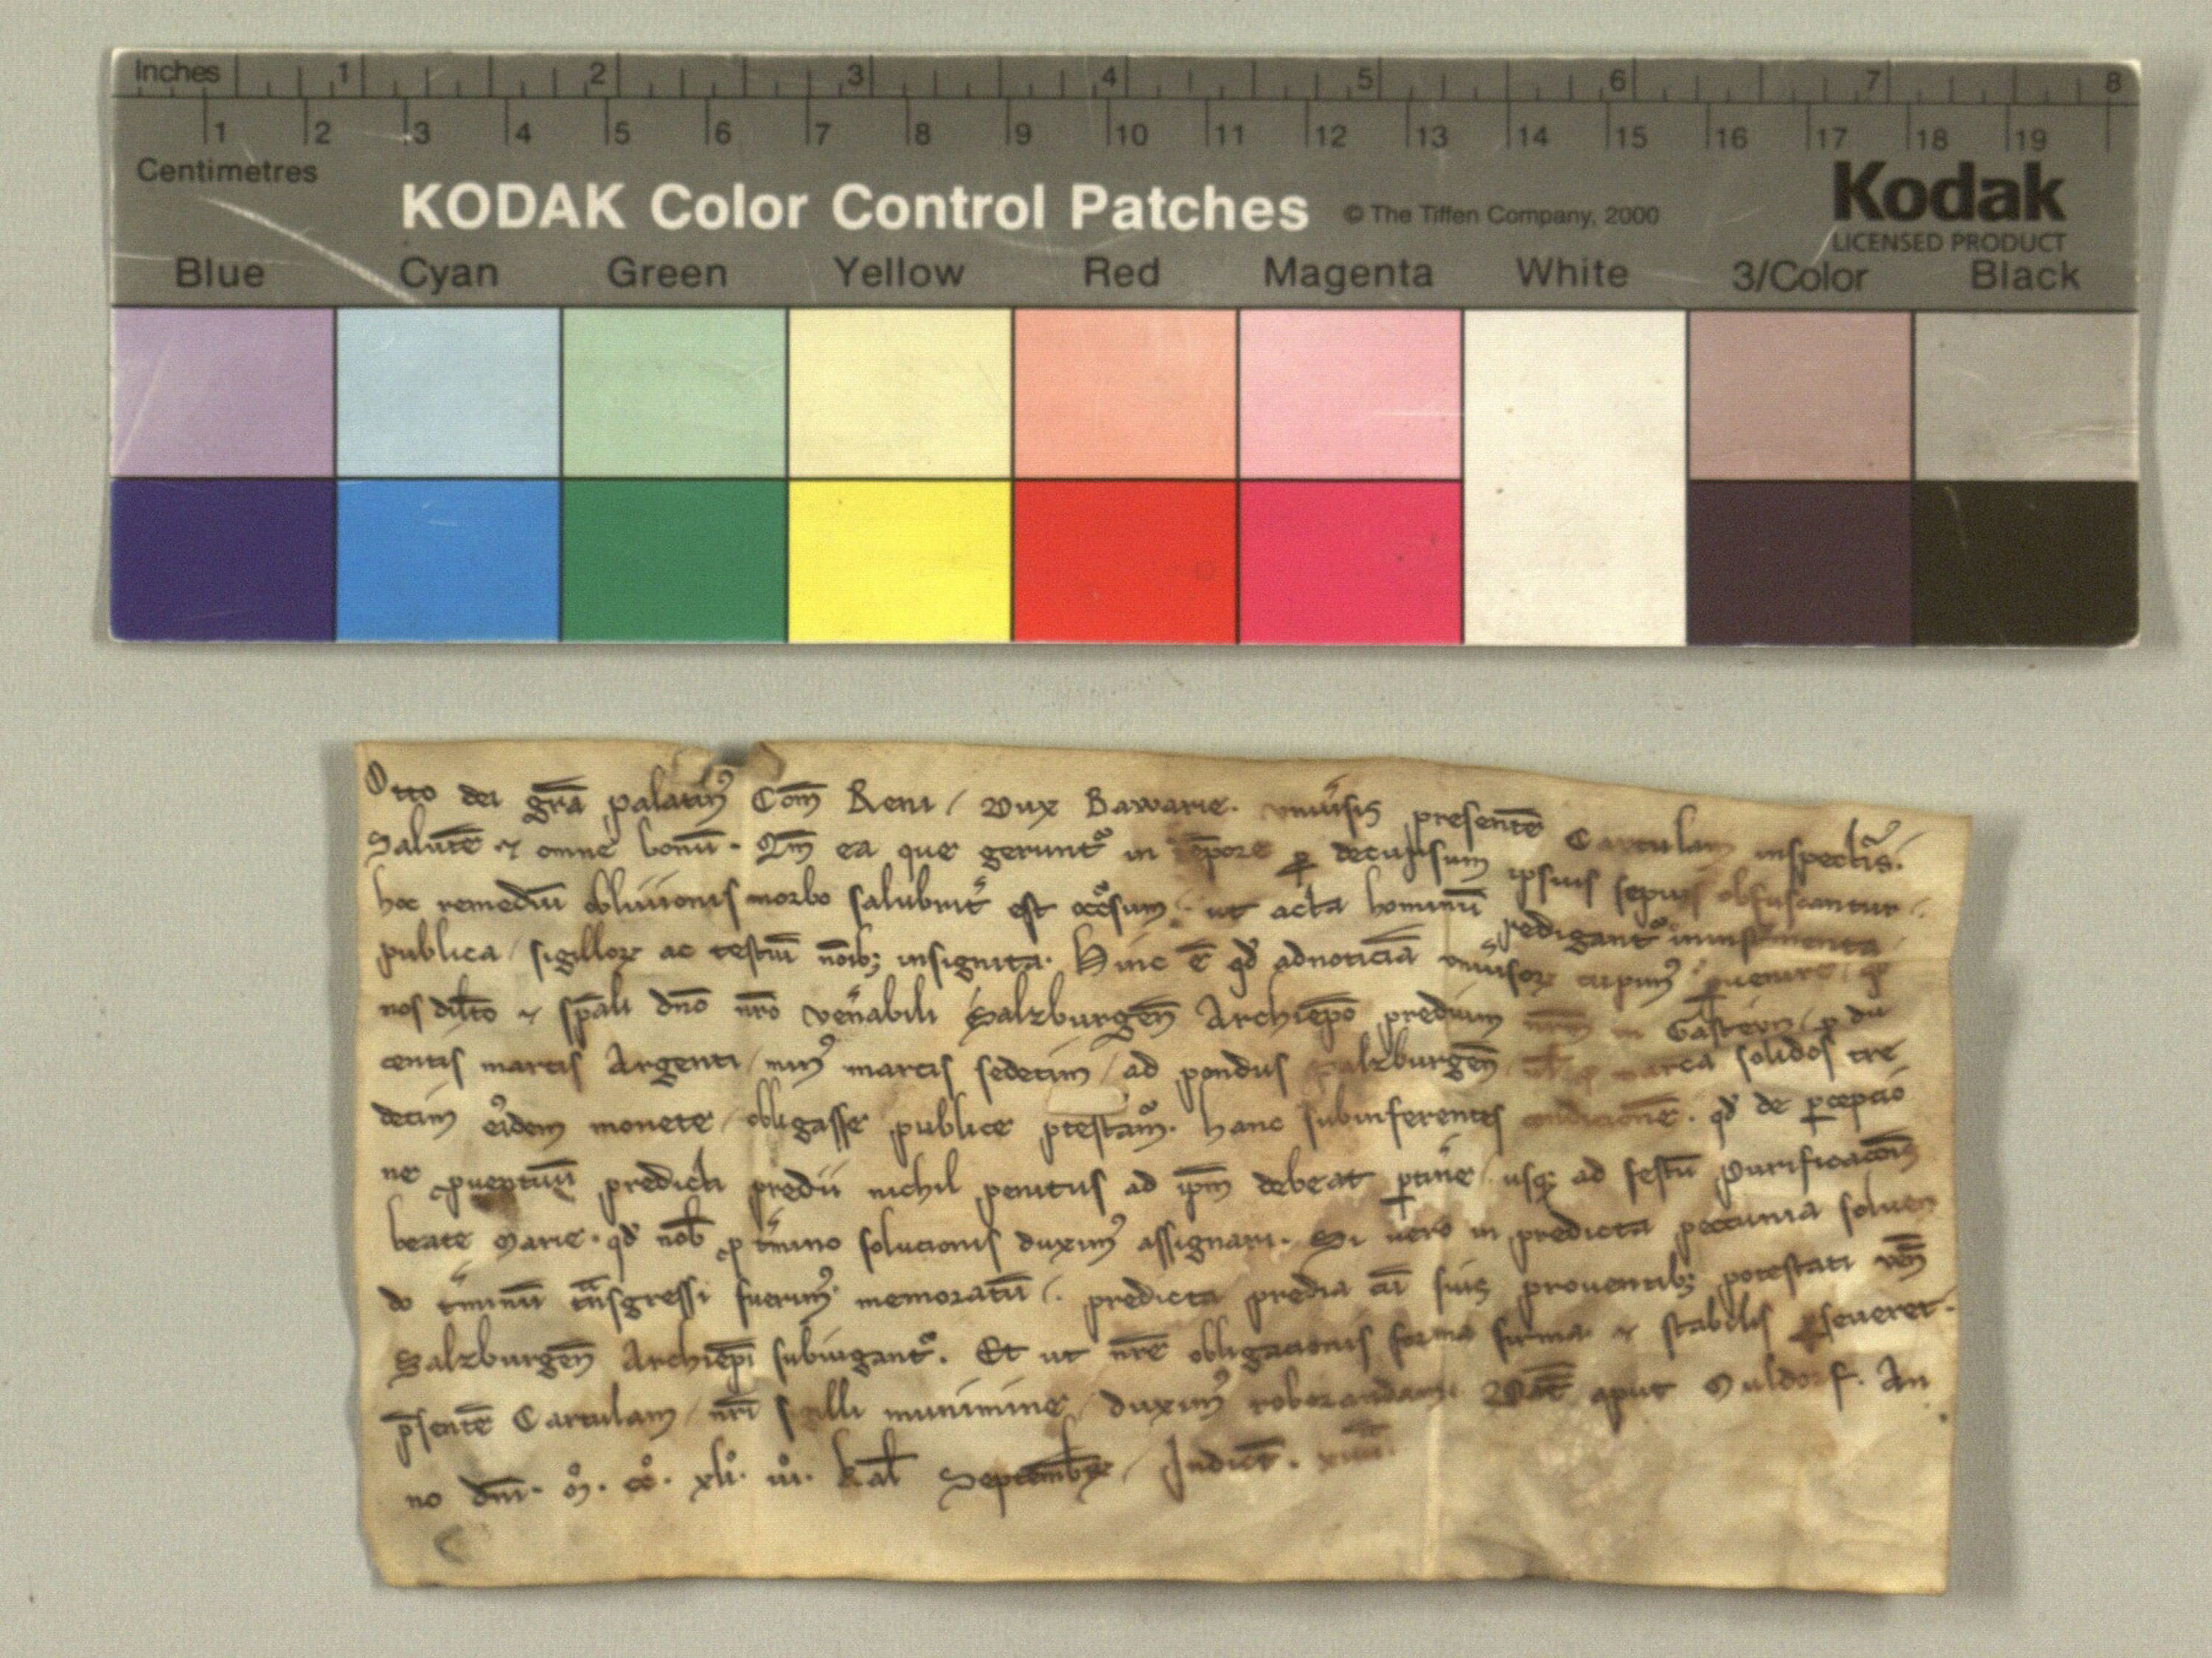 Inches 1 2 3 4 5 6 7 8
1 2 3 4 5 6 7 8 9 10 11 12 13 14 15 16 17 18 19
Centimetres
KODAK Color Control Patches © The Tiffen Company, 2000 Kodak
LICENSED PRODUCT
Blue Cyan Green Yellow Red Magenta White 3/Color Black
Otto dei gr̄a palatinꝰ Com̄ Reni / Dux Bawarie. vniúsis presentē Cartulam inspectis.
Salutē ⁊ omne bonū. Qm̄ ea que gerunt᷑ in tēpore ꝑ decursum ipsius sepius obfuscantur.
hoc remediū obliuionis morbo salubrit̾ est ut acta hominū redigant᷑ in
publica / sigilloꝝ ac testiū noīb; insignita. Hinc ē qd̾ ad noticiā vniúsoꝝ cupimꝰ
nos dil̄to ⁊ sp̄ali dn̄o nr̄o ven̾abili Salzburgen̄ Archiep̄o predium in Gastevn / ꝓ du
centis marcis Argenti / minꝰ marcis sedecim / ad pondus Salzburgen̄ marca solidos tre
decim eiꝰdem monete / obligasse publice ꝓtestam᷑. hanc subinferentes condicionē. qd̾ de ꝑcepcio
ne ꝓuentuū predicti predii nichil penitus ad ip̄m debeat ꝑtin̾e / usq; ad festū Purificacōis
beate Marie. qd̾ nob̄ ꝓ t̾mino solucionis duximꝰ assignari. Si uero in predicta peccunia soluen
do t̾minū tn̄sgressi fuerimꝰ memoratū /. predicta predia cū suis prouentib; potestati ven̄
Salzburgen̄ Archiep̄i subiugant᷑. Et ut nr̄e obligacionis forma firma ⁊ stabilis ꝑseueret.
p̄sentē Cartulam / nr̄i sigilli munimine / duximꝰ roborandam. Dat̄ aput Muldorf. An
no dn̄i. M̊. cc̊. xli̊. iii̊. kal̄ Septembr̄ / Indict̄. xiiii